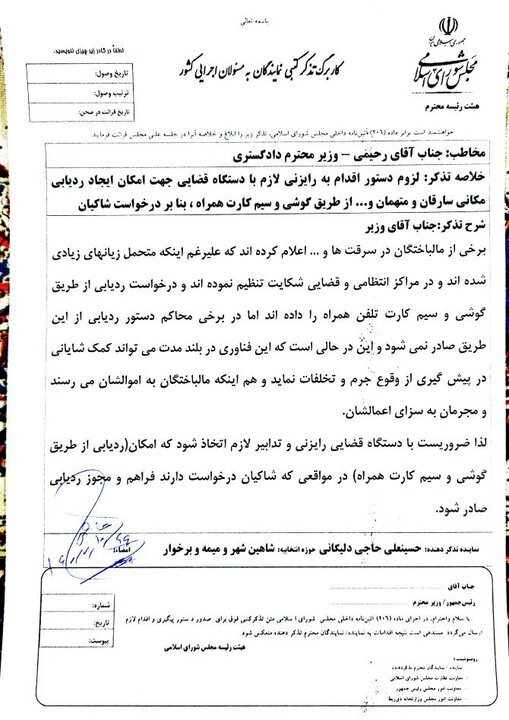 باسمه تعالی
جمهوری اسلامی ایران
مجلس شورای اسلامی
هیئت رئیسه محترم
کاربرگ تذکر کتبی نمایندگان به مسئولان اجرایی کشور
لطفاً در کادر زیر چیزی ننویسید.
تاریخ وصول:
ترتیب وصول:
تاریخ قرائت در صحن:
خواهشمند است برابر ماده (۲۰۶) آئین‌نامه داخلی مجلس شورای اسلامی، تذکر زیر را ابلاغ و خلاصه آنرا در جلسه علنی مجلس قرائت فرمایید.
مخاطب: جناب آقای رحیمی – وزیر محترم دادگستری
خلاصه تذکر: لزوم دستور اقدام به رایزنی لازم با دستگاه قضایی جهت امکان ایجاد ردیابی
مکانی سارقان و متهمان و... از طریق گوشی و سیم کارت همراه ، بنا بر درخواست شاکیان
شرح تذکر:جناب آقای وزیر
برخی از مالباختگان در سرقت ها و ... اعلام کرده اند که علیرغم اینکه متحمل زیانهای زیادی
شده اند و در مراکز انتظامی و قضایی شکایت تنظیم نموده اند و درخواست ردیابی از طریق
گوشی و سیم کارت تلفن همراه را داده اند اما در برخی محاکم دستور ردیابی از این
طریق صادر نمی شود و این در حالی است که این فناوری در بلند مدت می تواند کمک شایانی
در پیش گیری از وقوع جرم و تخلفات نماید و هم اینکه مالباختگان به اموالشان می رسند
و مجرمان به سزای اعمالشان.
لذا ضروریست با دستگاه قضایی رایزنی و تدابیر لازم اتخاذ شود که امکان(ردیابی از طریق
گوشی و سیم کارت همراه) در مواقعی که شاکیان درخواست دارند فراهم و مجوز ردیابی
صادر شود.
نماینده تذکر دهنده: حسینعلی حاجی دلیگانی حوزه انتخابیه: شاهین شهر و میمه و برخوار امضاء:
جناب آقای
رئیس‌جمهور / وزیر محترم
با سلام و احترام، در اجرای ماده (۲۰۶) آئین‌نامه داخلی مجلس شورای اسلامی متن تذکرکتبی فوق برای صدور دستور پیگیری و اقدام لازم
ارسال می‌گردد. مستدعی است نتیجه اقدامات به نماینده/ نمایندگان محترم تذکر دهنده منعکس شود
هیئت رئیسه مجلس شورای اسلامی
شماره:
تاریخ:
پیوست:
رونوشت:
- نماینده / نمایندگان محترم تذکردهنده
- معاونت نظارت مجلس شورای اسلامی
- معاونت امور مجلس رئیس جمهور
- معاونت امور مجلس وزارتخانه ذی‌ربط